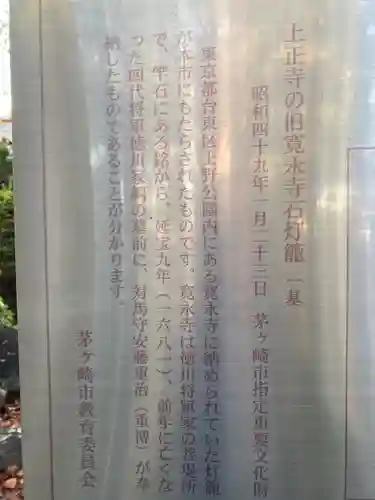 上正寺の旧寛永寺石灯籠 一基
昭和四十九年一月二十三日 茅ヶ崎市指定重要文化財
東京都台東区上野公園内にある寛永寺に納められていた灯籠
が本市にもたらされたものです。寛永寺は徳川将軍家の菩提所
で、竿石にある銘から、延宝九年(一六八一)、前年に亡くな
った四代将軍徳川家綱の墓前に、対馬守安藤重治(重博)が奉
納したものであることが分かります。
茅ヶ崎市教育委員会